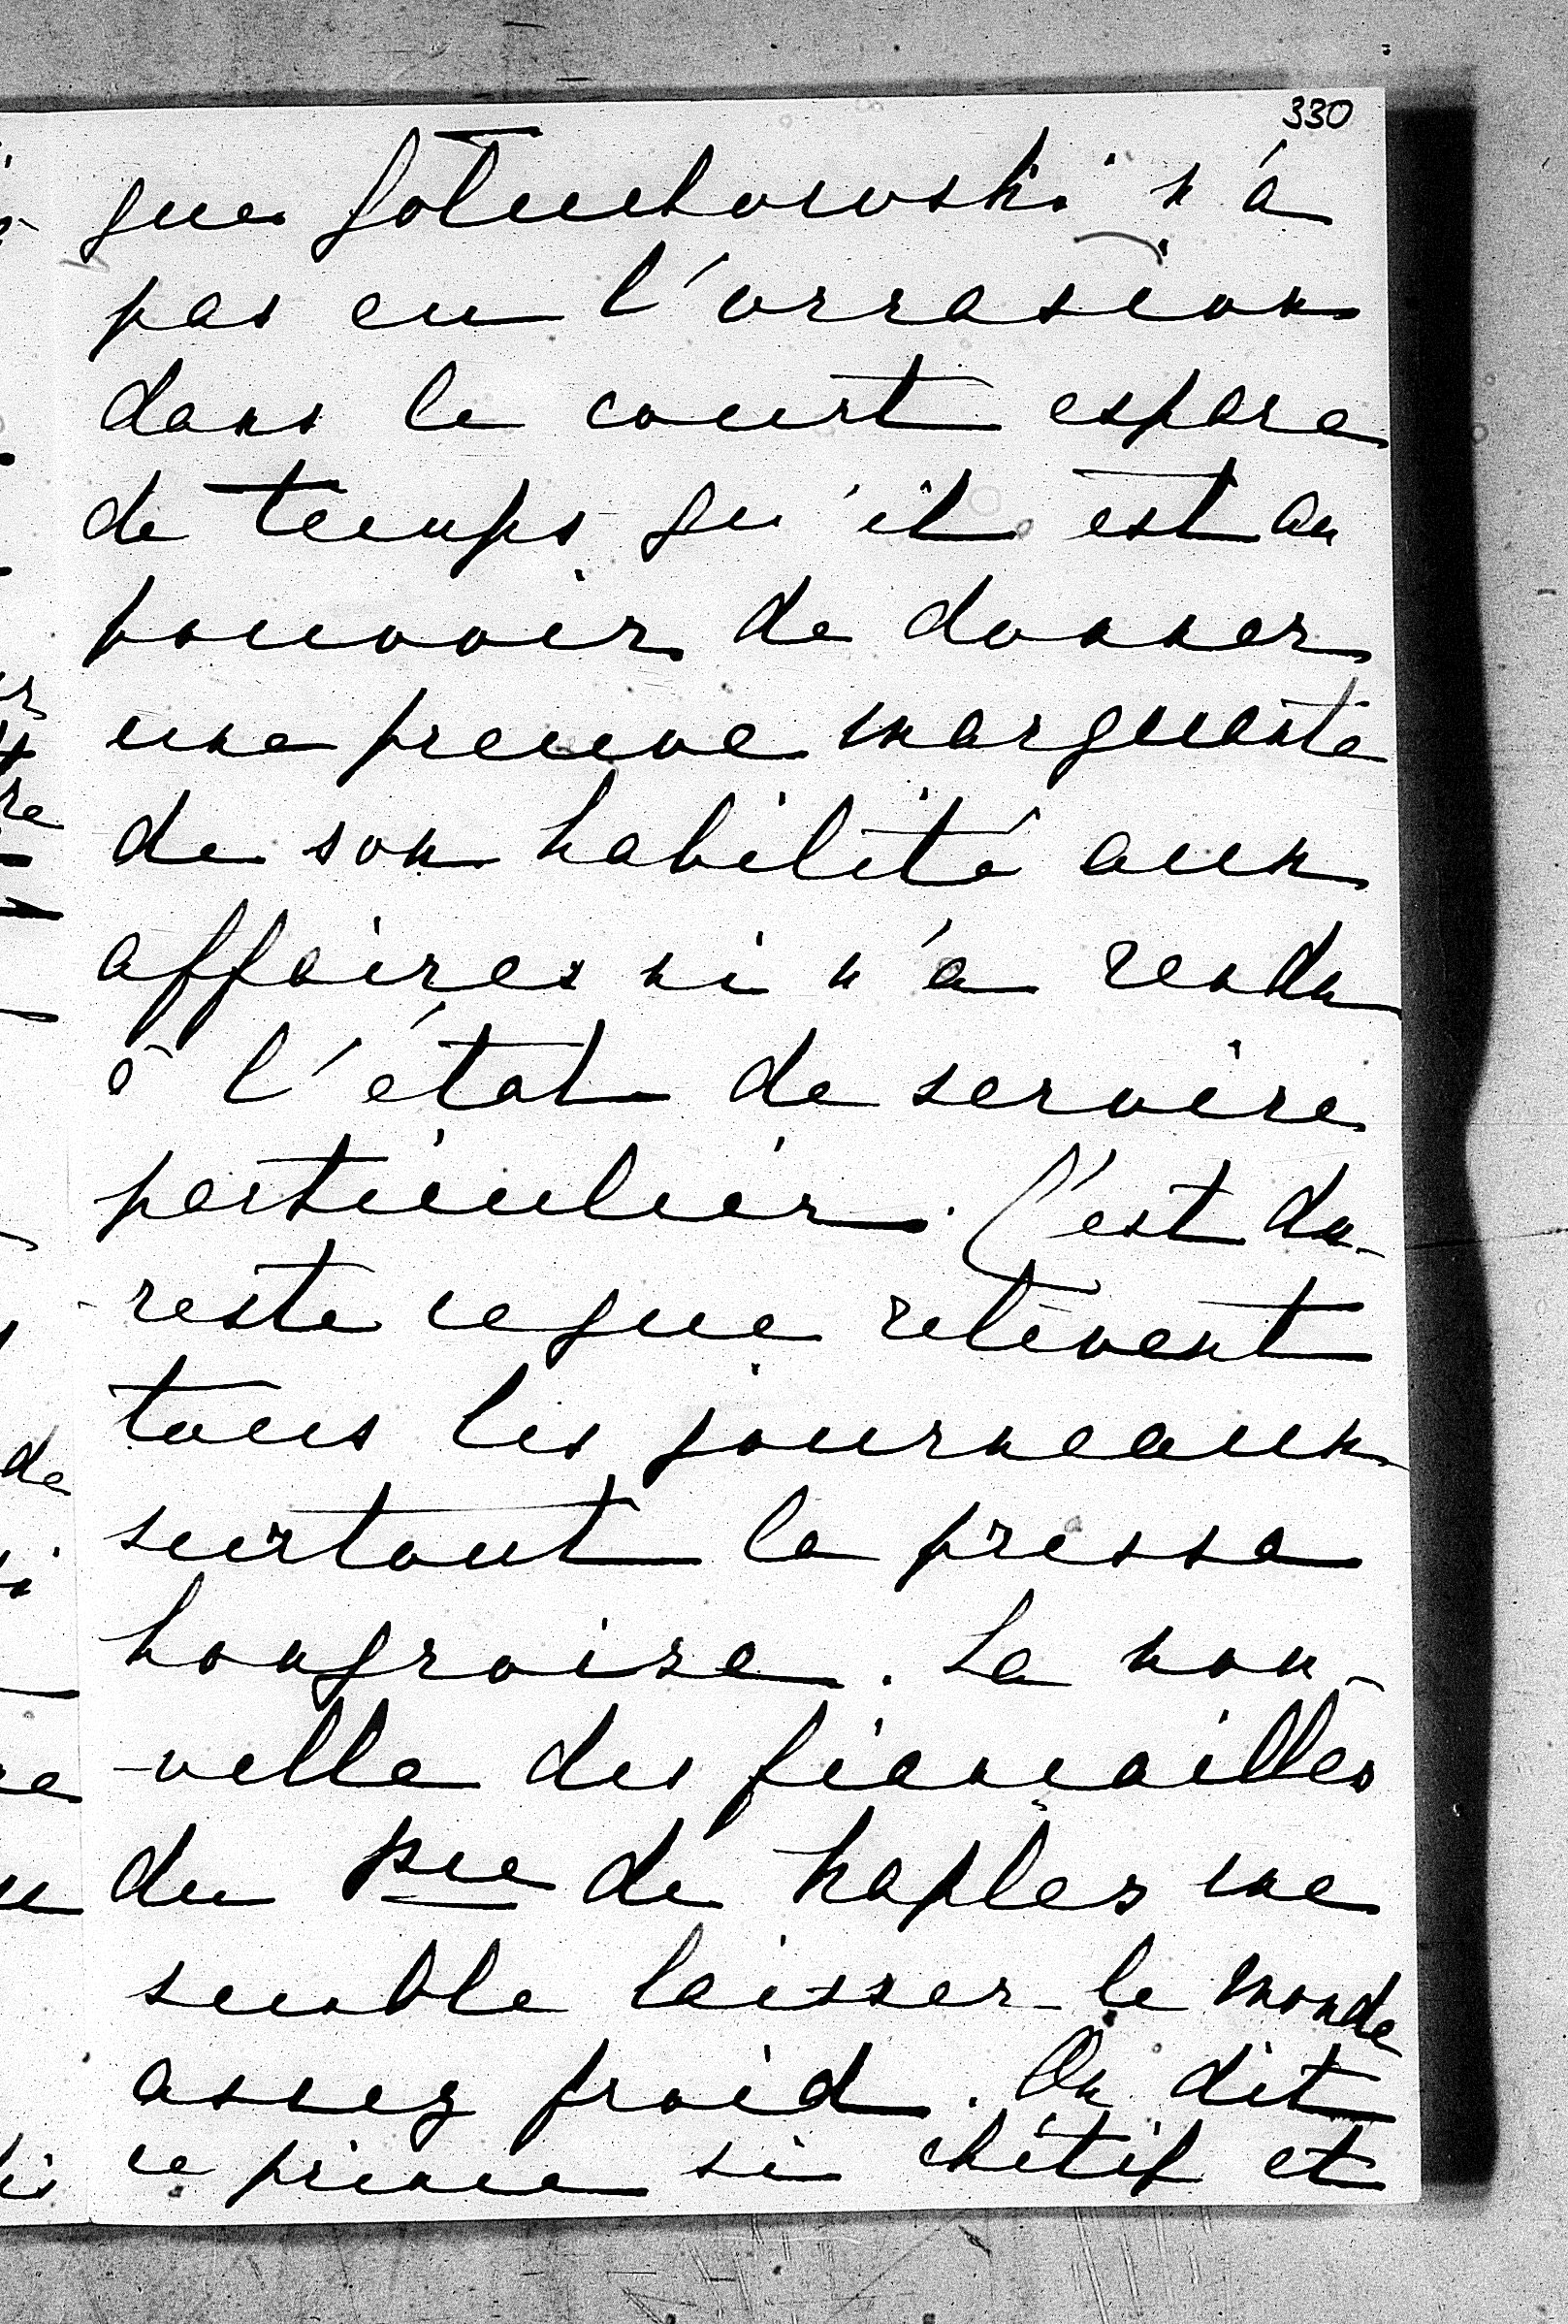 330
que Goluchowski n'a
pas eu l'occasion
dans le court espace
de temps qu'il est au
pouvoir de donner
une preuve marquante
de son habilité aux
affaires ni n'a rendu
à l'état de service
particulier. C'est du
reste ce que relèvent
tous les journaux
surtout la presse
hongroise. La nou-
-velle des fiançailles
du Pce de Naples me
semble laisser le monde
assez froid. On dit
ce prince si chétif et